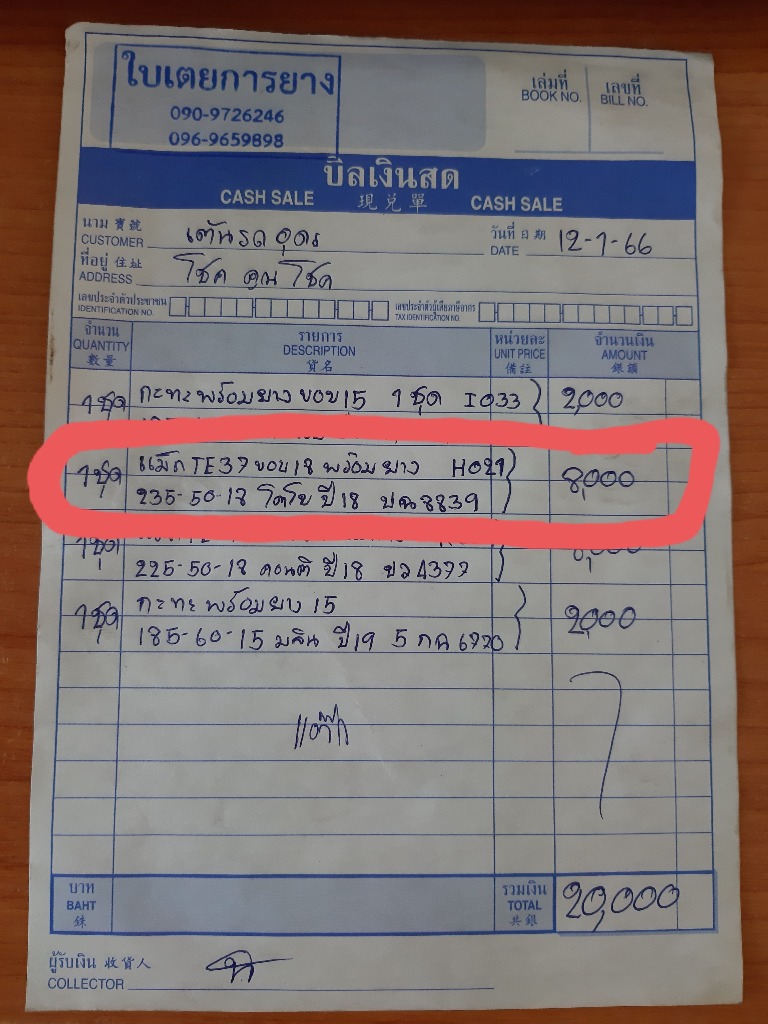 ใบเตยการยาง
090-9726246
096-9659898
เล่มที่
BOOK NO.
เลขที่
BILL NO.
บิลเงินสด
CASH SALE 現兑單 CASH SALE
นาม 寶號
CUSTOMER เต้นรถอุดร
วันที่ 日期
DATE 12-1-66
ที่อยู่ 住址
ADDRESS โชค คูณ โชค
เลขประจำตัวประชาชน
IDENTIFICATION NO.
เลขประจำตัวผู้เสียภาษีอากร
TAX IDENTIFICATION NO.
จำนวน
QUANTITY
數量
รายการ
DESCRIPTION
貨名
หน่วยละ
UNIT PRICE
備註
จำนวนเงิน
AMOUNT
銀碼
1ชุด กะทะพร้อมยางขอบ15 1 ชุด I033 2,000
1ชุด แม็กTE37ขอบ18 พร้อมยาง H021 8,000
235-50-18 โตโย ปี18 8839
1ชุด
225-50-18 คอนติ ปี18 ขว4377
1ชุด กะทะพร้อมยาง 15 2,000
185-60-15 มลิน ปี19 5 กฉ 6720
บาท
BAHT
銖
รวมเงิน
TOTAL
共銀
20,000
ผู้รับเงิน 收貨人
COLLECTOR